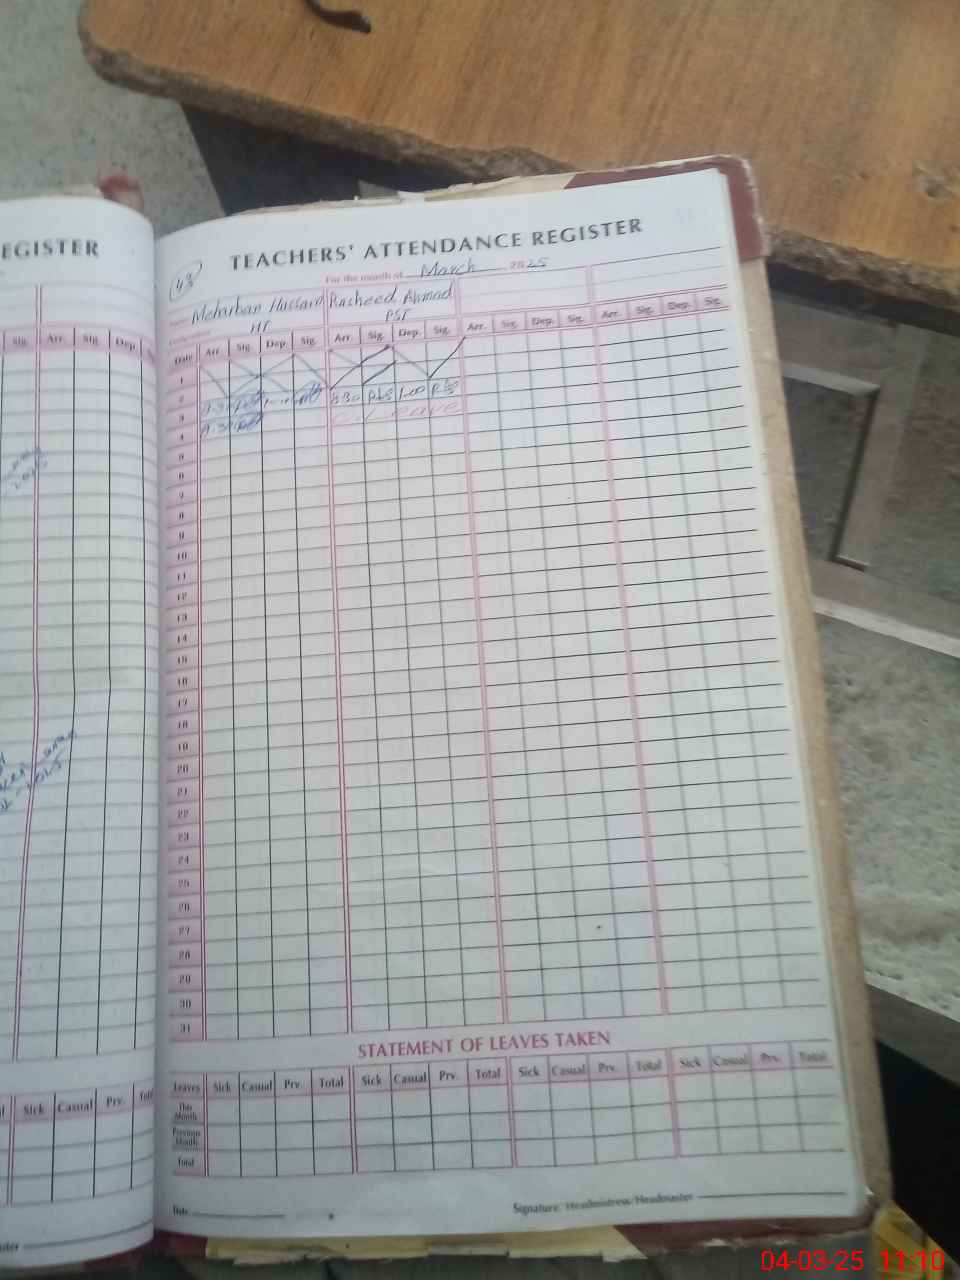 EGISTER
TEACHERS' ATTENDANCE REGISTER
43
For the month of March 2025
Meharban Hussain Rasheed Ahmad
HT PST
Date Arr. Sig. Dep. Sig. Arr. Sig. Dep. Sig. Arr. Sig. Dep. Sig. Arr. Sig. Dep. Sig.
Sig. Arr. Sig. Dep.
1
2
3 8:30 1:00
4
5
6
7
8
9
10
11
12
13
14
15
16
17
18
19
20
21
22
23
24
25
26
27
28
29
30
31
STATEMENT OF LEAVES TAKEN
Leaves Sick Casual Prv. Total Sick Casual Prv. Total Sick Casual Prv. Total Sick Casual Prv. Total
Sick Casual Prv.
This Month
Previous Month
Total
Date
Signature: Headmistress/Headmaster
04-03-25 11:10